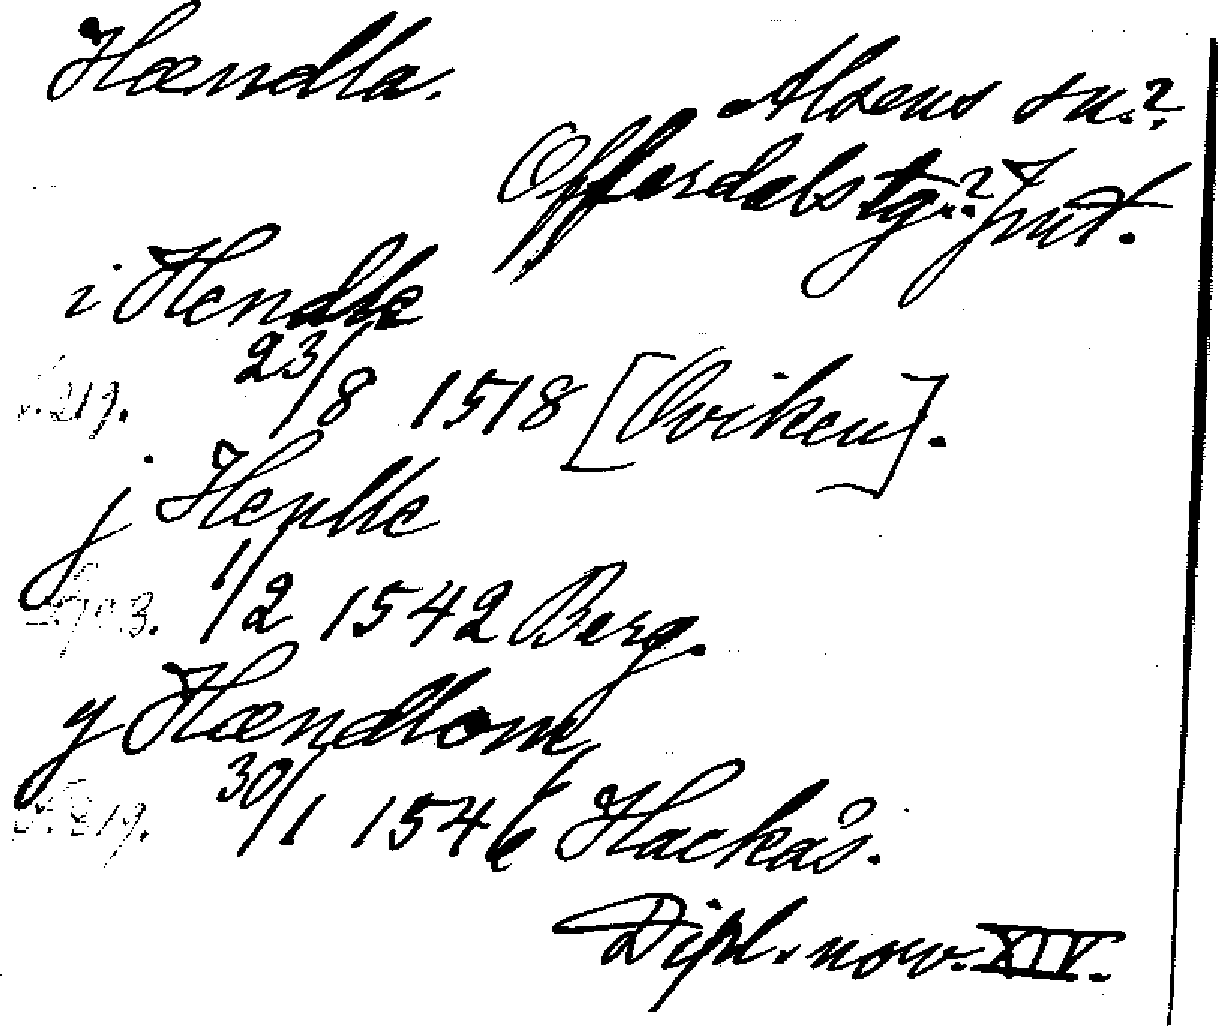 Hændla.
Alsens sn.?
Offerdals tg.? Jmt.
i Hendle
s. 219. 23/8 1518 [Oviken].
j Heplle
s. 703. 1/2 1542 Berg.
y Hændlom
s. 819. 30/1 1546 Hackås.
Dipl. norv. XIV.